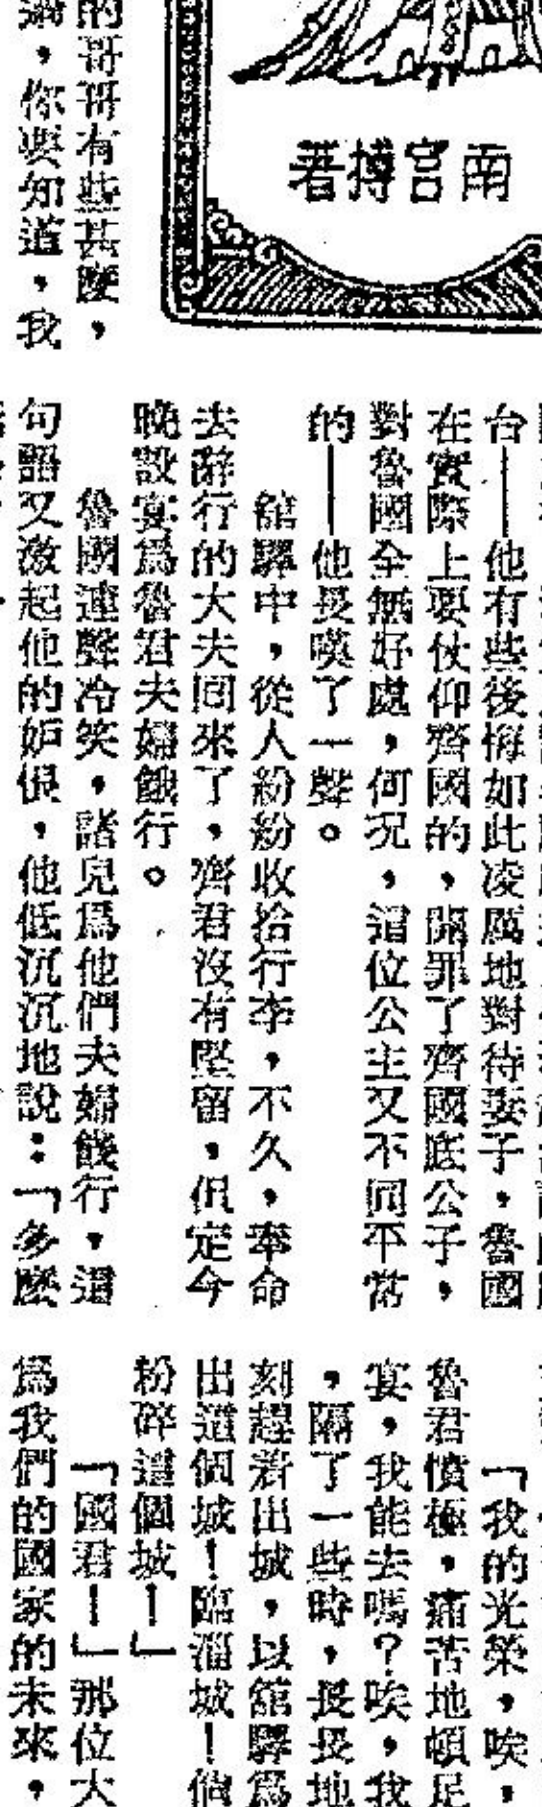 南宮搏著
的哥哥有些甚麼，
，你要知道，我
台——他有些後悔如此凌厲地對待妻子，魯國
在實際上要仗仰齊國的，開罪了齊國底公子，
對魯國全無好處，何況，這位公主又不同平常
的——他長嘆了一聲。
舘驛中，從人紛紛收拾行李，不久，奉命
去辭行的大夫回來了，齊君沒有堅留，但定今
晚設宴爲魯君夫婦餞行。
魯國連聲冷笑，諸兒爲他們夫婦餞行，這
句語又激起他的妒恨，他低沉沉地說：「多麼
「我的光榮，唉，
魯君憤極，痛苦地頓足
宴，我能去嗎？唉，我
，隔了一些時，長長地
刻趕着出城，以舘驛爲
出這個城！臨淄城！倘
粉碎這個城！」
「國君！」那位大
爲我們的國家的未來，